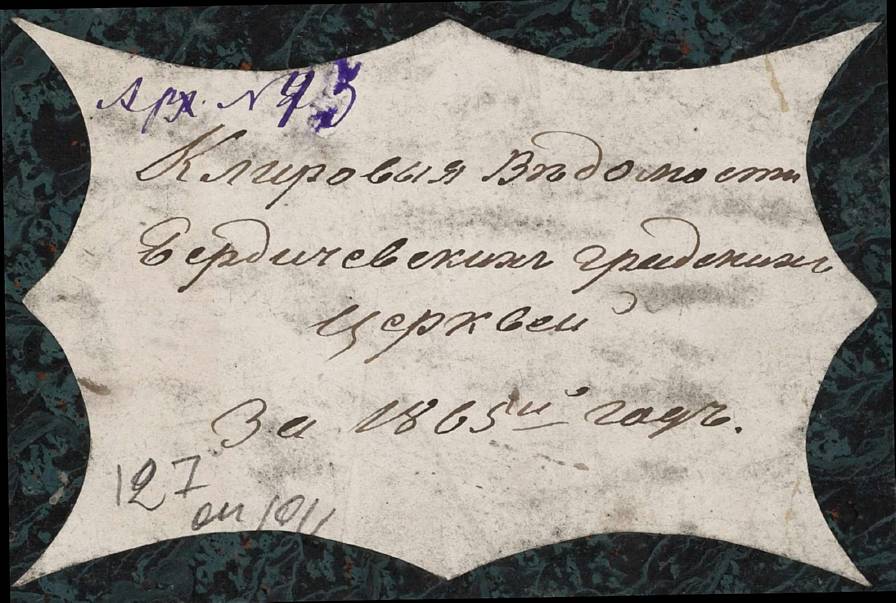 Арх. №
Клировыя Вѣдомости
Бердичевскихъ градскихъ
Церквей
За 1865й годъ.
127
оп 1011